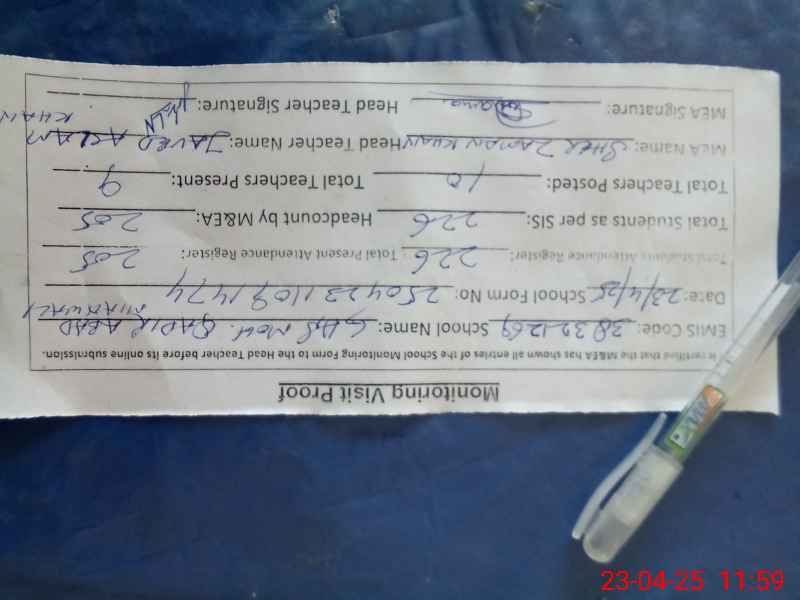 Monitoring Visit Proof
It is certified that the M&EA has shown all entries of the School Monitoring Form to the Head Teacher before its online submission.
EMIS Code: 38321269 School Name: GHS MOCH. QADIR ABAD MIANWALI
Date: 23/4/25 School Form No: 25042311091474
Total Students Attendance Register: 226 Total Present Attendance Register: 205
Total Students as per SIS: 226 Headcount by M&EA: 205
Total Teachers Posted: 10 Total Teachers Present: 9
MEA Name: SHER ZAMAN KHAN Head Teacher Name: JAVED ASLAM KHAN
MEA Signature: Head Teacher Signature:
23-04-25 11:59